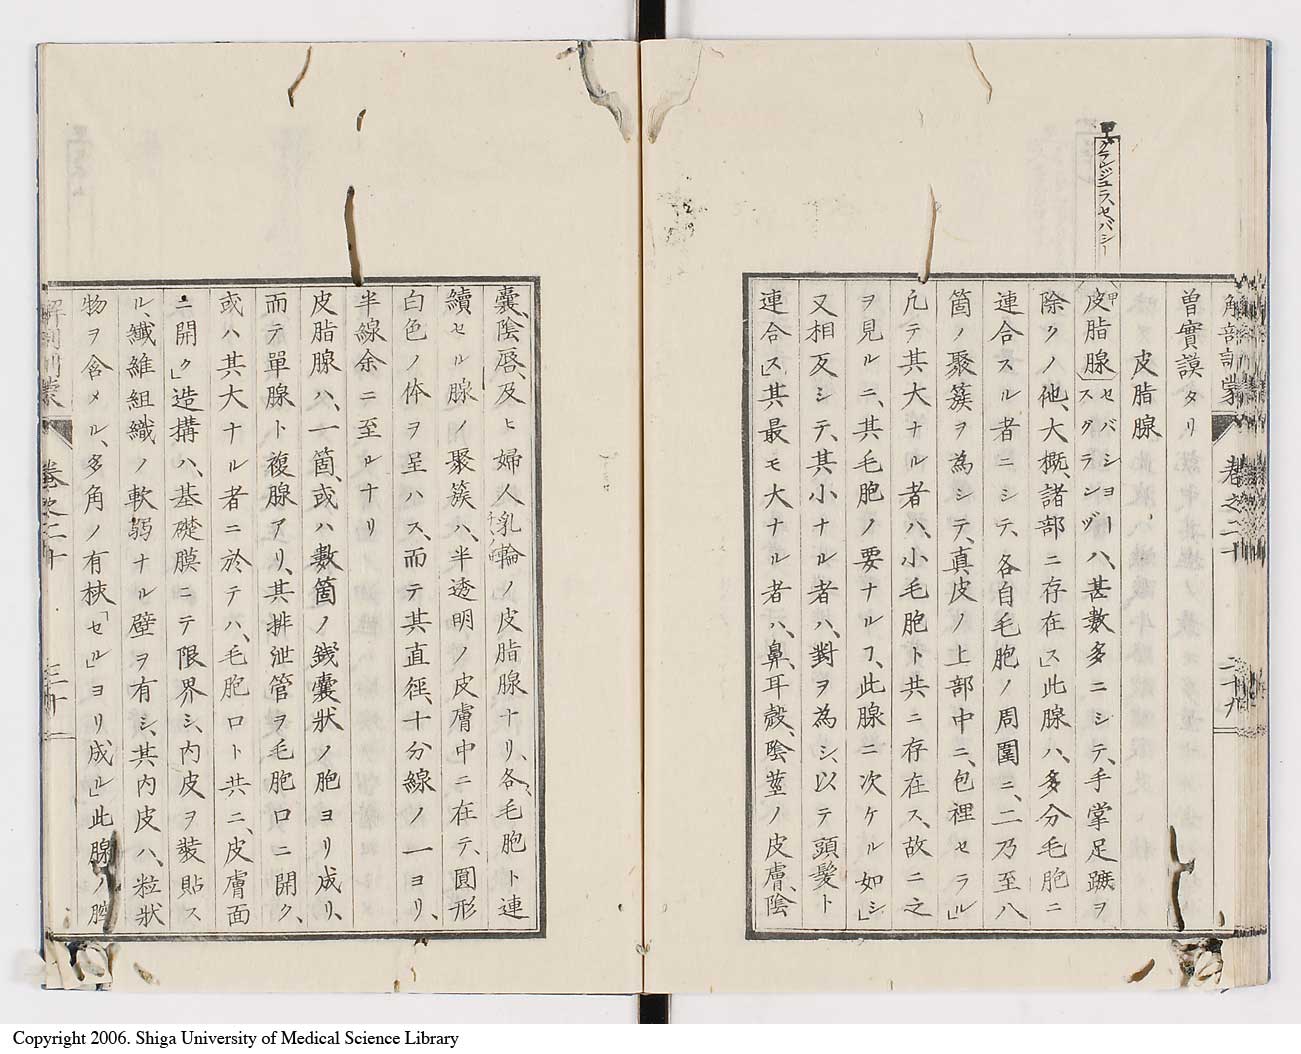 甲
グランジュラスセバシー
解剖訓蒙 巻之二十 二十九
曽實謨タリ
皮脂腺
甲皮脂腺セバシヨースグランヅハ、甚數多ニシテ、手掌足蹠ヲ
除クノ他、大概、諸部ニ存在ス」此腺ハ、多分毛胞ニ
連合スル者ニシテ、各自毛胞ノ周圍ニ、二乃至八
箇ノ聚簇ヲ為シテ、真皮ノ上部中ニ、包裡セラル」
凢テ其大ナル者ハ、小毛胞ト共ニ存在ス、故ニ之
ヲ見ルニ、其毛胞ノ要ナルヿ、此腺ニ次ケル如シ」
又相反シテ、其小ナル者ハ、對ヲ為シ、以テ頭髮ト
連合ス」其最モ大ナル者ハ、鼻、耳殻、陰莖ノ皮膚、陰
囊、陰唇、及ヒ婦人乳輪ノ皮脂腺ナリ、各毛胞ト連
續セル腺ノ聚簇ハ、半透明ノ皮膚中ニ在テ、圓形
白色ノ体ヲ呈ハス、而テ其直徑、十分線ノ一ヨリ、
半線余ニ至ルナリ
皮脂腺ハ、一箇、或ハ數箇ノ錢囊狀ノ胞ヨリ成リ、
而テ單腺ト複腺アリ、其排泄管ヲ毛胞口ニ開ク、
或ハ其大ナル者ニ於テハ、毛胞口ト共ニ、皮膚面
ニ開ク」造搆ハ、基礎膜ニテ限界シ、内皮ヲ裝貼ス
ル、纎維組織ノ軟弱ナル壁ヲ有シ、其内皮ハ、粒狀
物ヲ含メル、多角ノ有核「セル」ヨリ成ル」此腺ノ腔
解剖訓蒙 巻之二十 三十